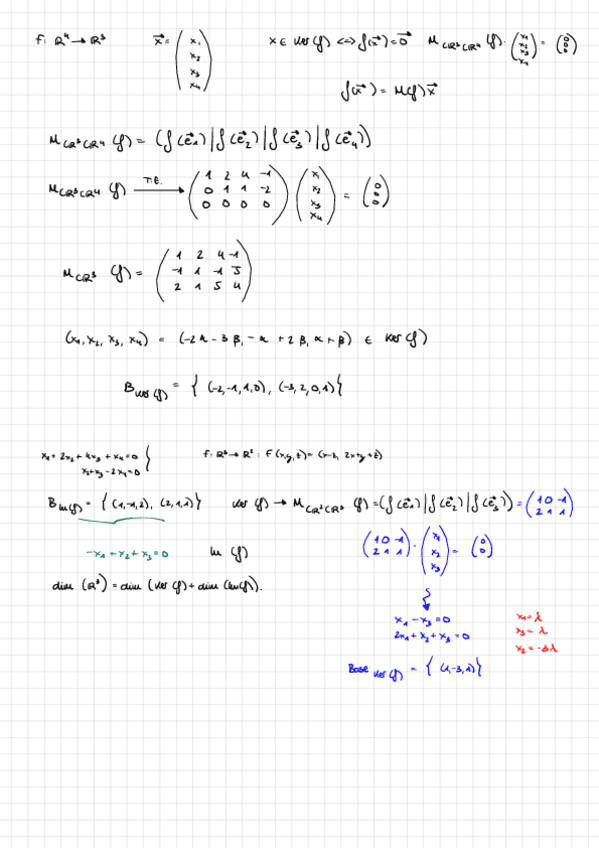 f: ℝ⁴ → ℝ³ x⃗ = (x₁ x₂ x₃ x₄) x ∈ ker(f) <=> f(x⃗) = 0⃗ M_{Cℝ³Cℝ⁴}(f)·(x₁ x₂ x₃ x₄) = (0 0 0)
f(x⃗) = M(f)x⃗
M_{Cℝ³Cℝ⁴}(f) = (f(e⃗₁) | f(e⃗₂) | f(e⃗₃) | f(e⃗₄))
M_{Cℝ³Cℝ⁴}(f) → T.E.
1 2 4 -1 x₁
0 1 1 -2 x₂ = 0
0 0 0 0 x₃ 0
x₄ 0
1 2 4 -1
M_{Cℝ³}(f) = -1 1 -1 5
2 1 5 4
(x₁, x₂, x₃, x₄) = (-2α - 3β, -α + 2β, α + β) ∈ ker(f)
B_{ker(f)} = { (-2,-1,1,0), (-3,2,0,1) }
x₁ + 2x₂ + 4x₃ + x₄ = 0 f: ℝ³ → ℝ²: F(x,y,z) = (x-z, 2x+y+z)
x₂ + x₃ - 2x₄ = 0
B_{Im(f)} = { (1,-1,2), (2,1,1) } ker(f) → M_{Cℝ²Cℝ³}(f) = (f(e⃗₁) | f(e⃗₂) | f(e⃗₃)) = (1 0 -1 / 2 1 1)
-x₁ + x₂ + x₃ = 0 Im(f)
(1 0 -1 / 2 1 1) · (x₁ x₂ x₃) = (0 0)
dim(ℝ³) = dim(ker(f)) + dim(Im(f)).
x₁ - x₃ = 0 x₁ = λ
2x₁ + x₂ + x₃ = 0 x₃ = λ
x₂ = -3λ
Base_{ker(f)} = { (1,-3,1) }